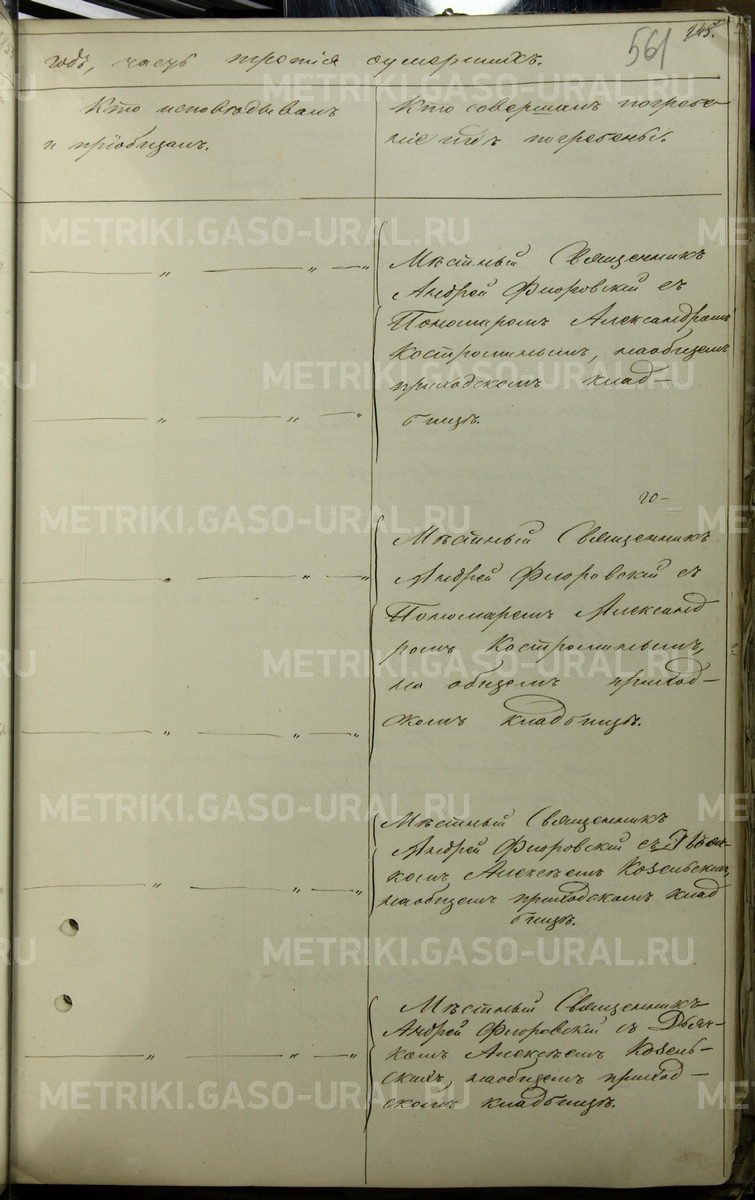 245.
561
годъ, часть третія о умершихъ.
Кто исповѣдывалъ
и пріобщалъ.
Кто совершалъ погребе-
ніе и гдѣ погребены.
METRIKI.GASO-URAL.RU
Мѣстный Священникъ
Андрей Флоровскій съ
Пономаремъ Александромъ
Костроминымъ, на общемъ
приходскомъ клад-
бищѣ.
METRIKI.GASO-URAL.RU
METRIKI.GASO-URAL.RU
го-
Мѣстный Священникъ
Андрей Флоровскій съ
Пономаремъ Александ
ромъ Костроминымъ,
на общемъ приход-
скомъ кладбищѣ.
METRIKI.GASO-URAL.RU
METRIKI.GASO-URAL.RU
Мѣстный Священникъ
Андрей Флоровскій съ Дьяч-
комъ Алексѣемъ Козельскимъ,
на общемъ приходскомъ клад
бищѣ.
METRIKI.GASO-URAL.RU
Мѣстный Священникъ
Андрей Флоровскій съ Дьяч-
комъ Алексѣемъ Козель-
скимъ, на общемъ приход-
скомъ кладбищѣ.
METRIKI.GASO-URAL.RU